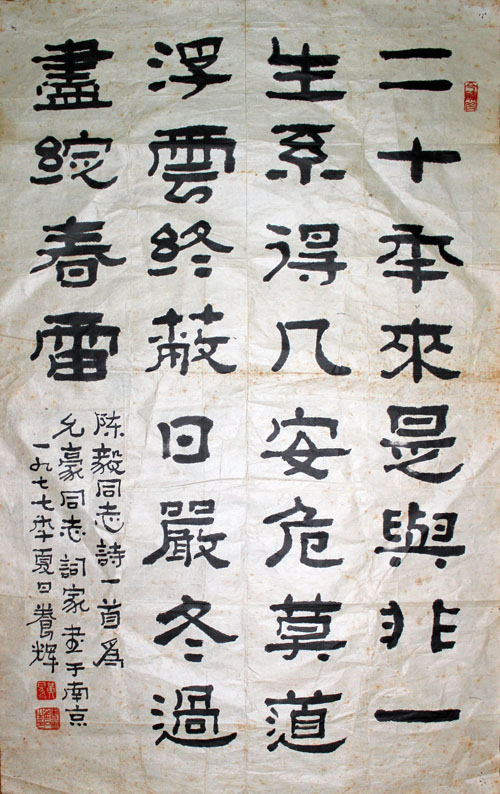 二十年來是與非一
生系得几安危莫道
浮雲終蔽日嚴冬過
盡綻春雷
陈毅同志詩一首爲
允豪同志詞家書于南京
一九七七年夏日養辉